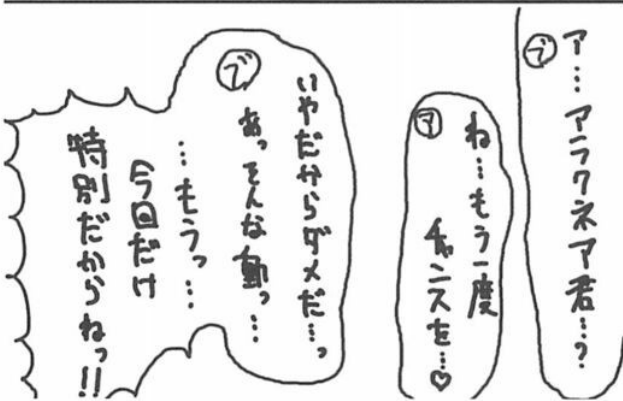 ブ
ア…アラクネア君…?
ア
ね…もう一度
チャンスを…♡
ブ
いやだからダメだ…っ
あっそんな動っ…
…もうっ…
今回だけ
特別だからねっ!!